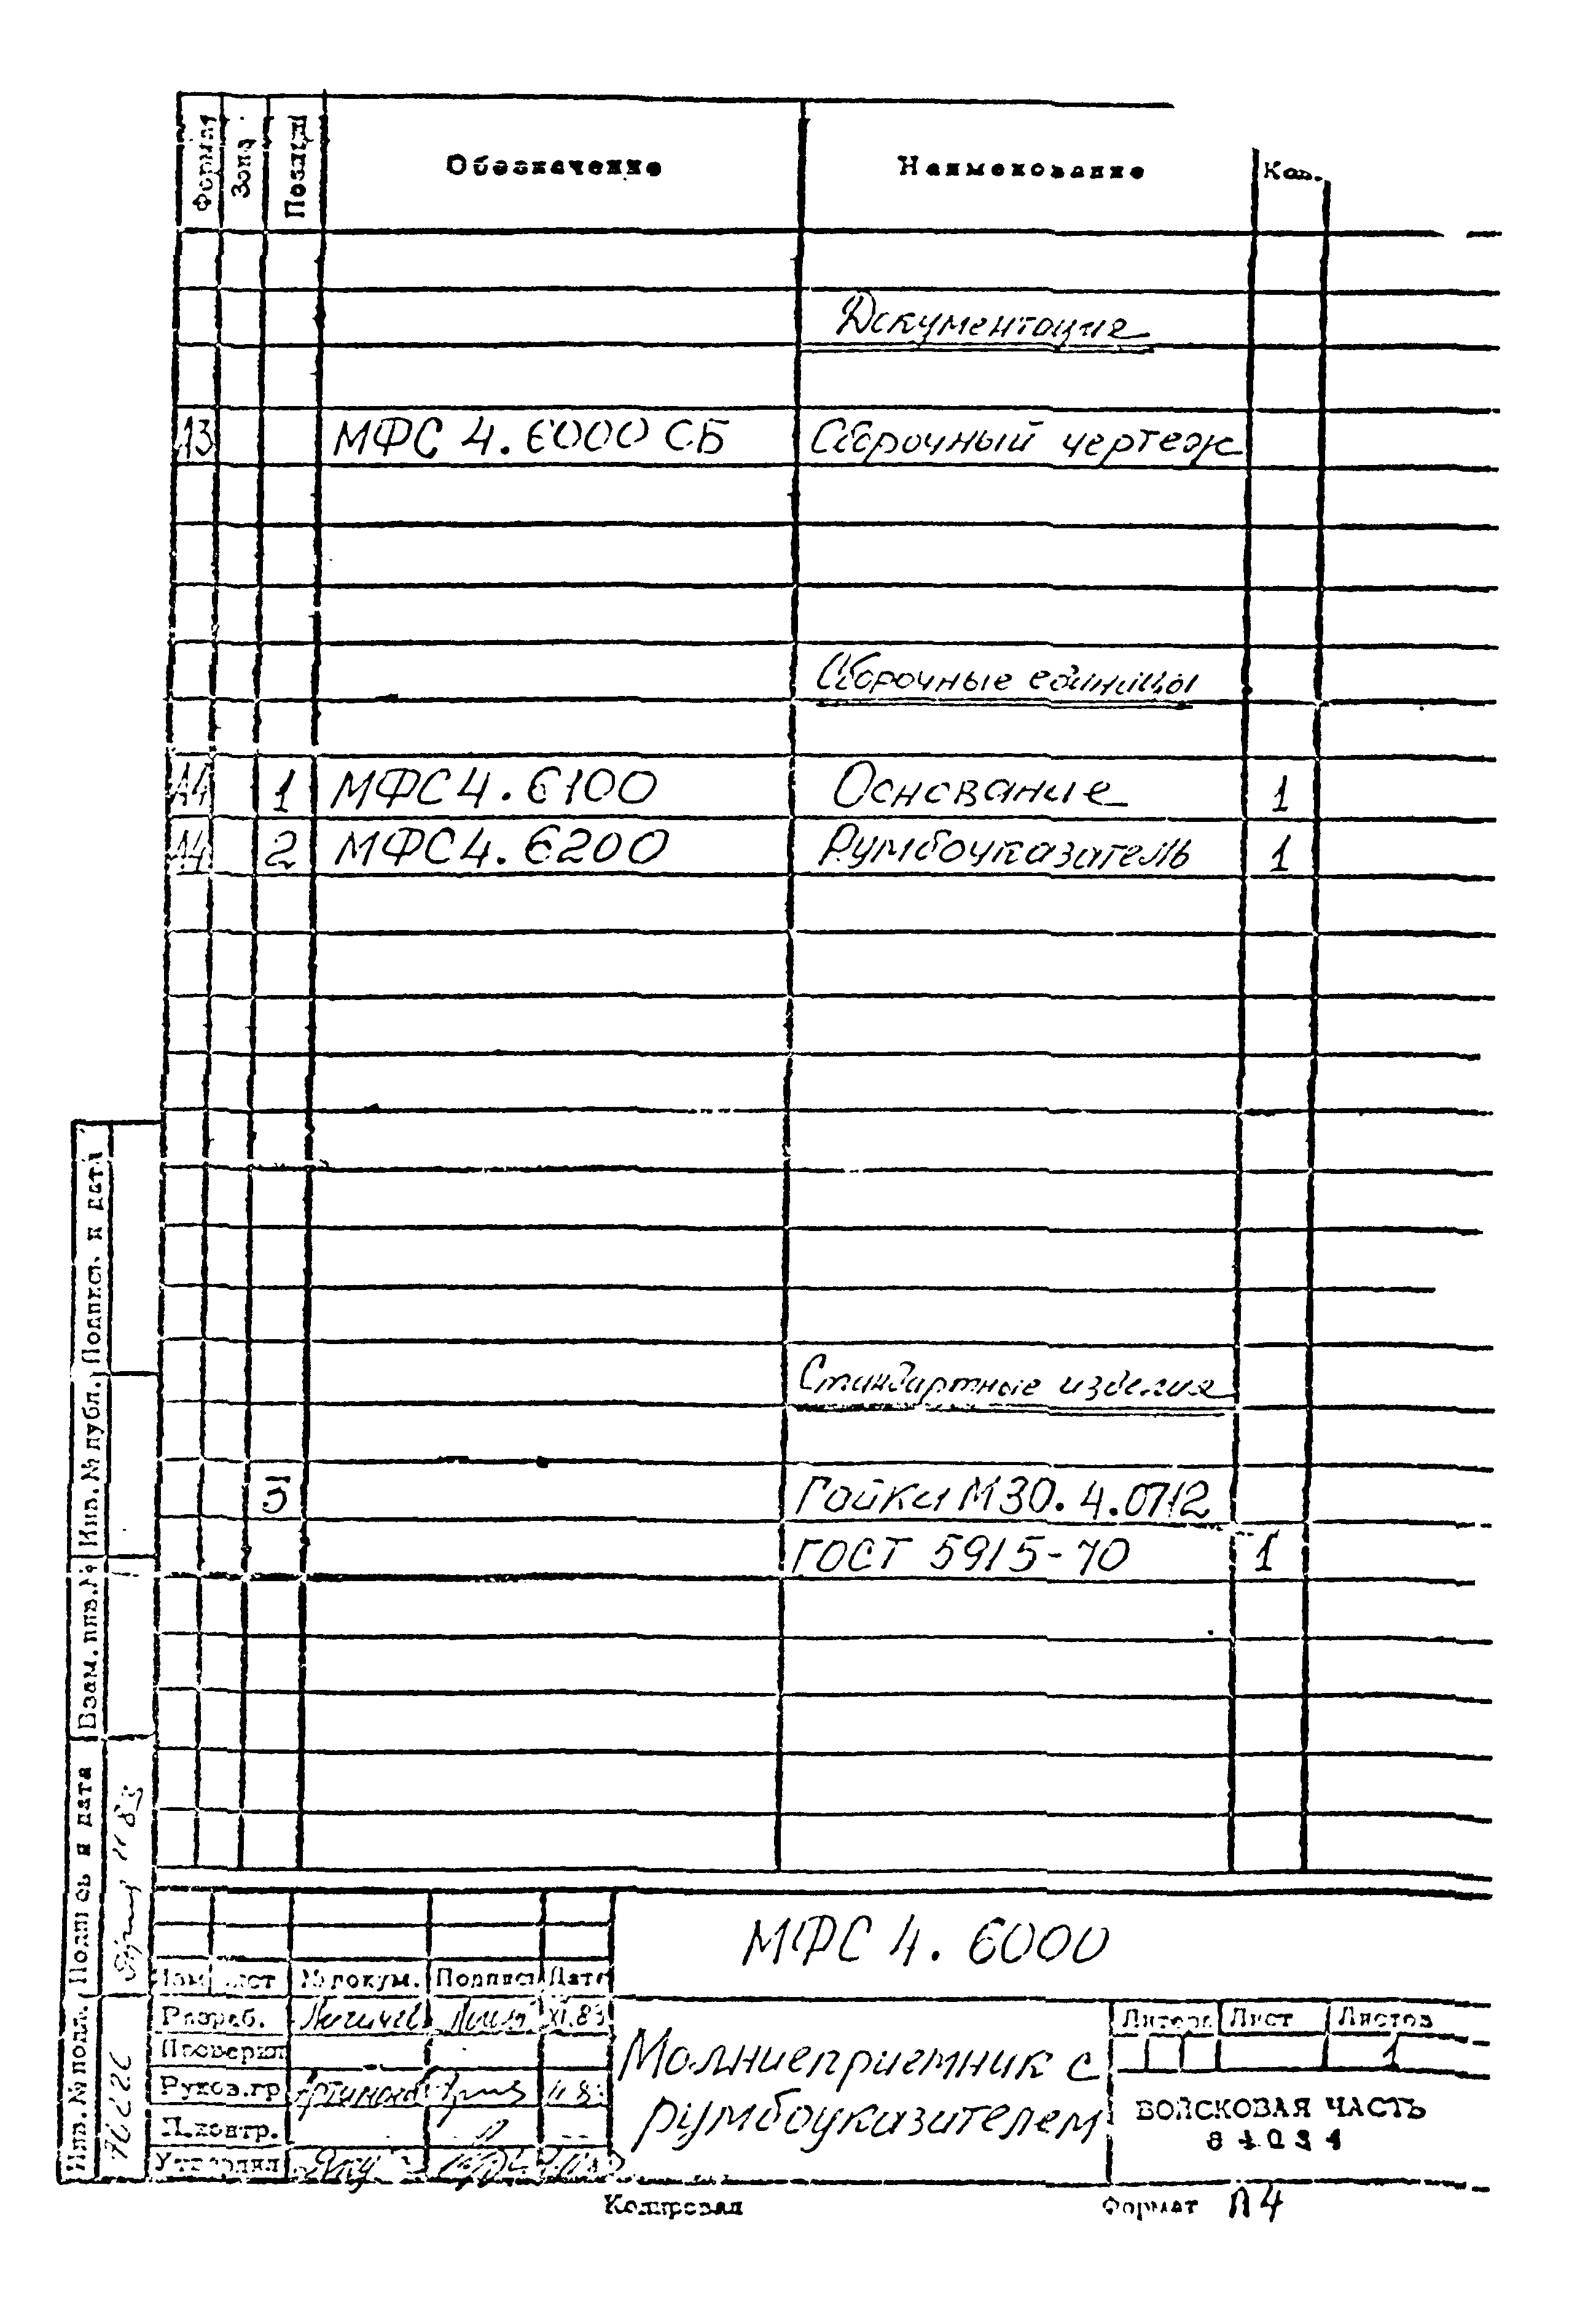 Формат Зона Позиция Обозначение Наименование Кол.
Документация
А3 МФС 4.6000 СБ Сборочный чертеж
Сборочные единицы
А4 1 МФС 4.6100 Основание 1
А4 2 МФС 4.6200 Румбоуказатель 1
Стандартные изделия
3 Гайки М30.4.0712
ГОСТ 5915-70 1
Подпись и дата
Инв.№ дубл.
Взам.инв.№
Подпись и дата
11 83
Инв.№ подл.
МФС 4.6000
Изм Лист № докум. Подпись Дата
Разраб. XI.83
Проверил
Руков.гр 11.83
Н.контр.
Утвердил
Молниеприемник с
румбоуказителем
Литера Лист Листов
1
ВОЙСКОВАЯ ЧАСТЬ
Копировал Формат А4